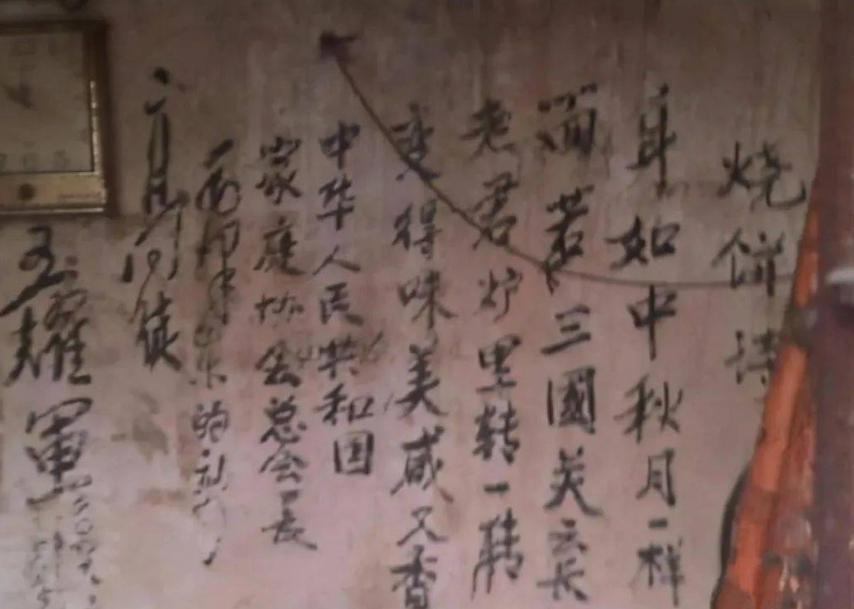 烧饼诗
身如中秋月一样
面若三國关云长
老君炉里转一转
变得味美咸又香
中华人民共和国
家庭协会总会长
的
高
徒
王耀軍